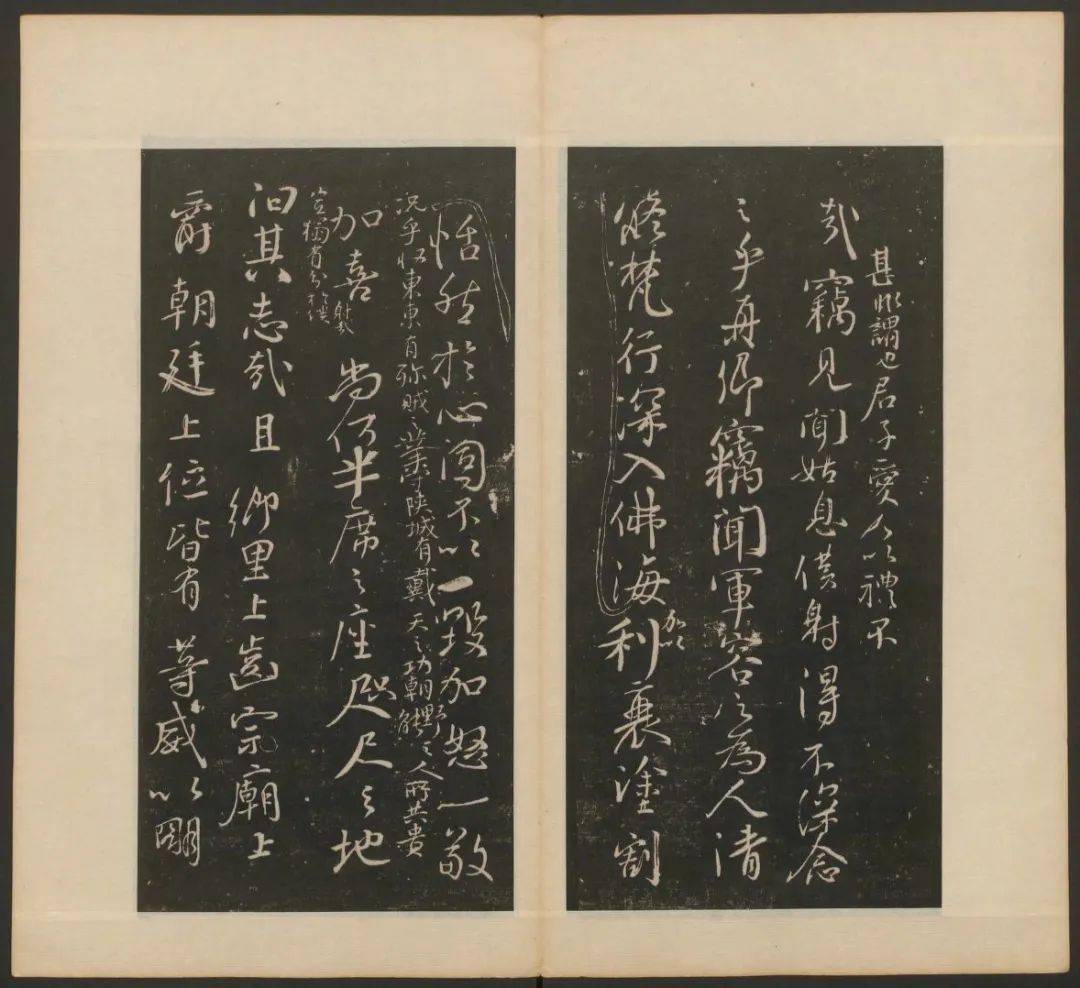 甚非謂也君子愛人以禮不
哉竊見聞姑息僕射得不深念
之乎再卿竊聞軍容之為人清
修梵行深入佛海加以利衰塗割
恬然於心固不以一毀加怒一敬
況乎收東京有殄賊之業守陝城有戴天之功朝野之人所共貴
加喜尚何半席之座咫尺之地
豈獨有分於僕
射哉
能
汩其志哉且鄉里上齒宗廟上
爵朝廷上位皆有等威以明